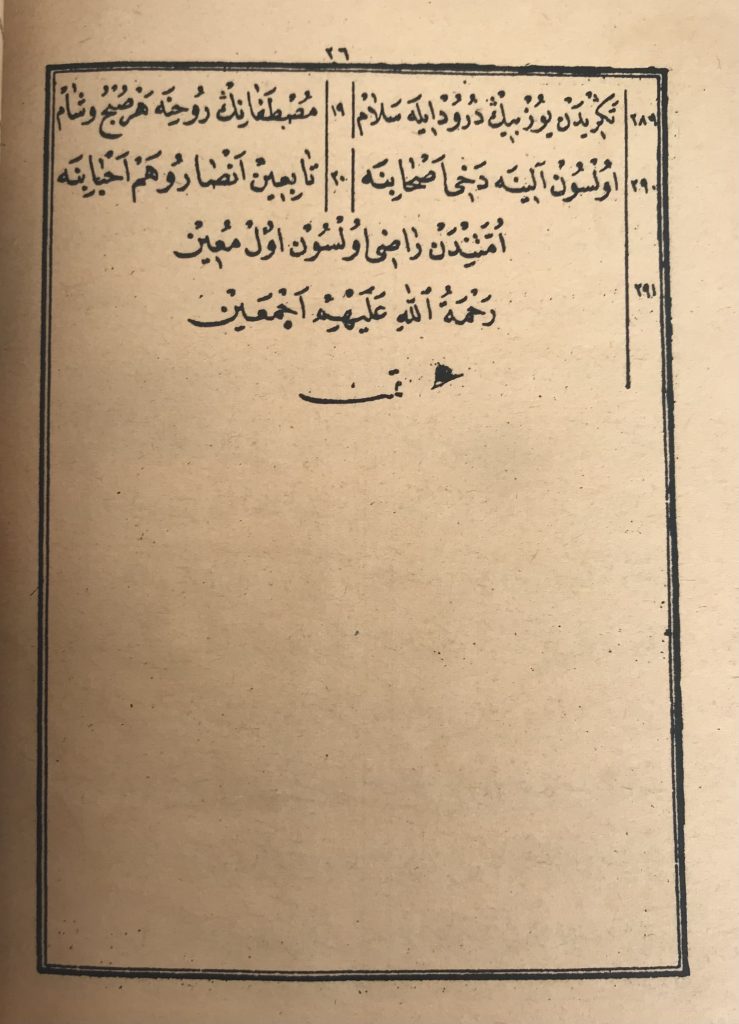 ٢٦
٢٨٩ تَكْرِيدَنْ يُوزْ بِيڭْ دُرُودْ اِيلَه سَلَامْ ١٩ مُصْطَفَانِڭْ رُوحِنَه هَرْ صُبْحُ وشَامْ
٢٩٠ اُولْسُونْ آلِينَه دَخِى اَصْحَابِنَه ٢٠ تَابِعِينْ اَنْصَارُ و هَمْ اَحْبَابِنَه
اُمَّتِنْدَنْ رَاضِى اُولْسُونْ اُولْ مُعِينْ
٢٩١ رَحْمَةُ ٱللهِ عَلَيْهِمْ اَجْمَعِينْ
تمت